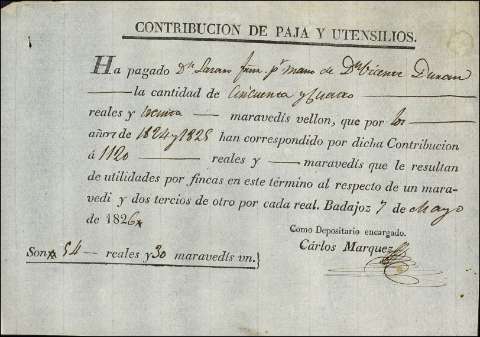 CONTRIBUCION DE PAJA Y UTENSILIOS.
Ha pagado Dn. pr. mano de Dn. Vicente Duran
la cantidad de Cincuenta y Cuatro
reales y treinta maravedís vellon, que por los
años de 1824 y 1825 han correspondido por dicha Contribucion
á 1120 reales y maravedís que le resultan
de utilidades por fincas en este término al respecto de un mara-
vedi y dos tercios de otro por cada real. Badajoz 7 de Mayo
de 1826
Como Depositario encargado.
Cárlos Marquez
Son 54 reales y 30 maravedís vn.